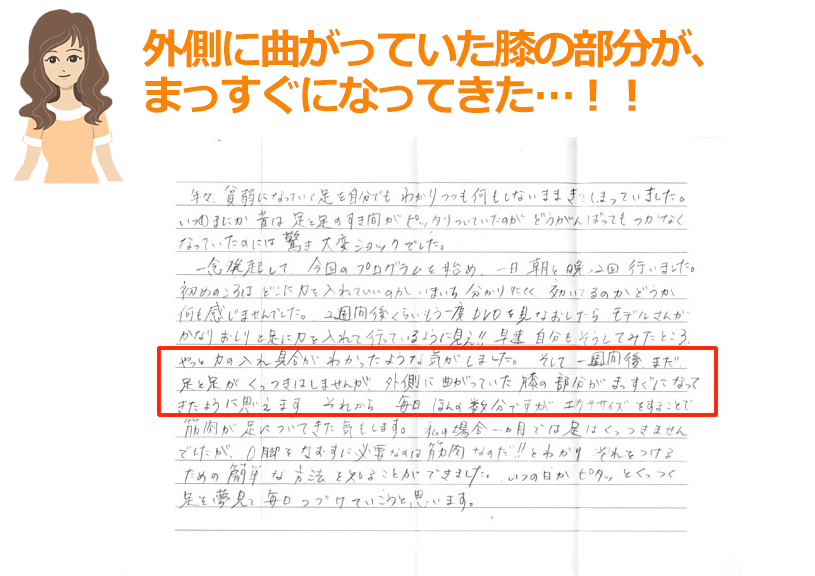 外側に曲がっていた膝の部分が、
まっすぐになってきた…！！
年々、貧弱になっていく足を自分でもわかりつつも何もしないままきてしまっていました。
いつのまにか昔は足と足のすき間がピッタリついていたのがどうがんばってもつかなく
なっていたのには驚き大変ショックでした。
一念発起して今回のプログラムを始め、一日朝と晩、2回行いました。
初めのころはどこに力を入れていいのかいまいち分かりにくく、効いてるのかどうか
何も感じませんでした。2週間後くらいもう一度DVDを見なおしたらモデルさんが
かなりおしりと足に力を入れて行っているように見え!!早速自分もそうしてみたところ、
やっと力の入れ具合がわかったような気がしました。そして一週間後、まだ
足と足がくっつきはしませんが、外側に曲がっていた膝の部分がまっすぐになって
きたように思えます それから毎日ほんの数分ですがエクササイズをすることで
筋肉が足についてきた気もします。私の場合一カ月では足はくっつきません
でしたが、O脚をなおすに必要なのは筋肉なのだ!!とわかりそれをつける
ための簡単な方法を知ることができました。いつの日かピタッとくっつく
足を夢見て毎日つづけていこうと思います。